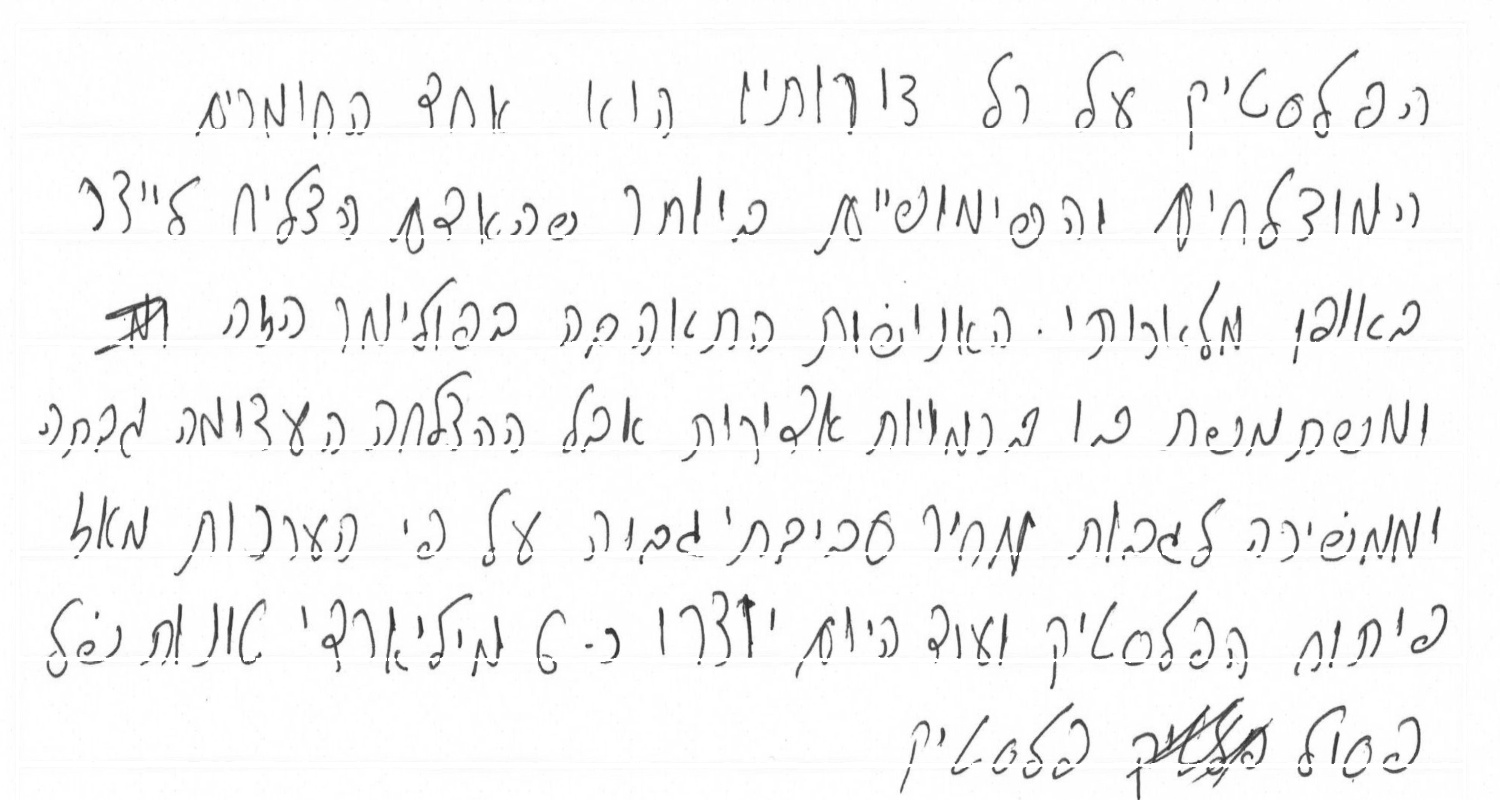 הפלסטיק על כל צורותיו הוא אחד החומרים
המוצלחים והשימושיים ביותר שהאדם הצליח לייצר
באופן מלאכותי. האנושות התאהבה בפולימר הזה
ומשתמשת בו בכמויות אדירות אבל ההצלחה העצומה גבתה
וממשיכה לגבות מחיר סביבתי גבוה על פי הערכות מאז
פיתוח הפלסטיק ועוד היום יוצרו כ-6 מיליארדי טונות של
פסול פלסטיק